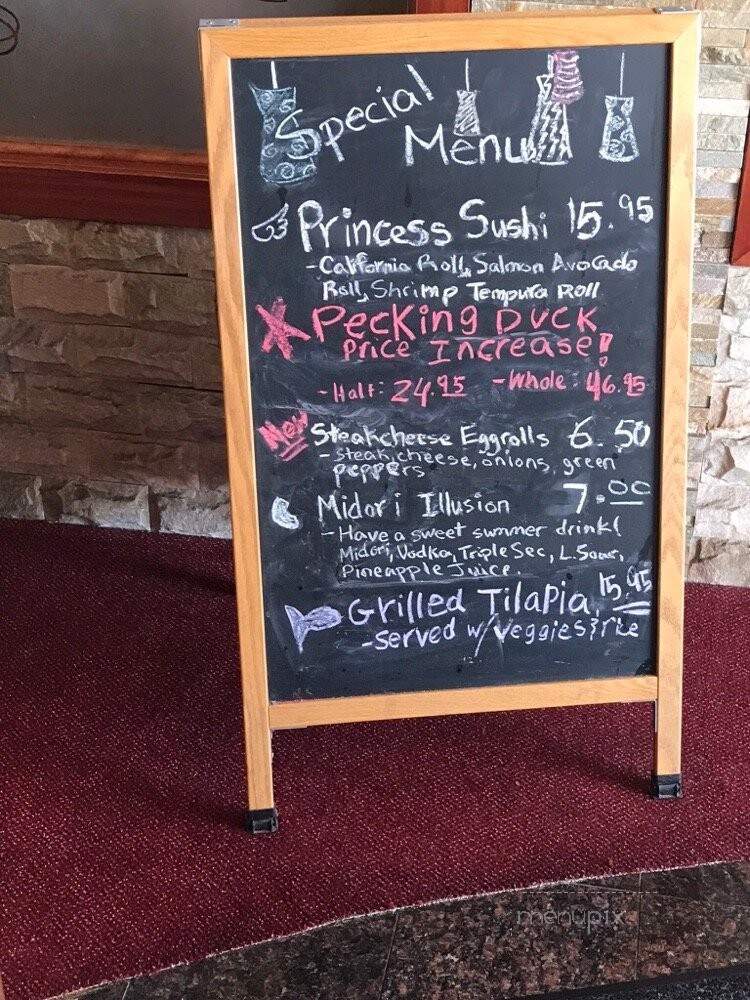 Special
Menu
Princess Sushi 15.95
- California Roll, Salmon Avocado
Roll, Shrimp Tempura Roll
Pecking Duck
Price Increase!
- Half: 24.95 - Whole: 46.95
New Steakcheese Eggrolls 6.50
- steak, cheese, onions, green
peppers
Midori Illusion 7.00
- Have a sweet summer drink!
Midori, Vodka, Triple Sec, L. Sour,
Pineapple Juice.
Grilled Tilapia, 15.95
- served w/ veggies & rice
menupix